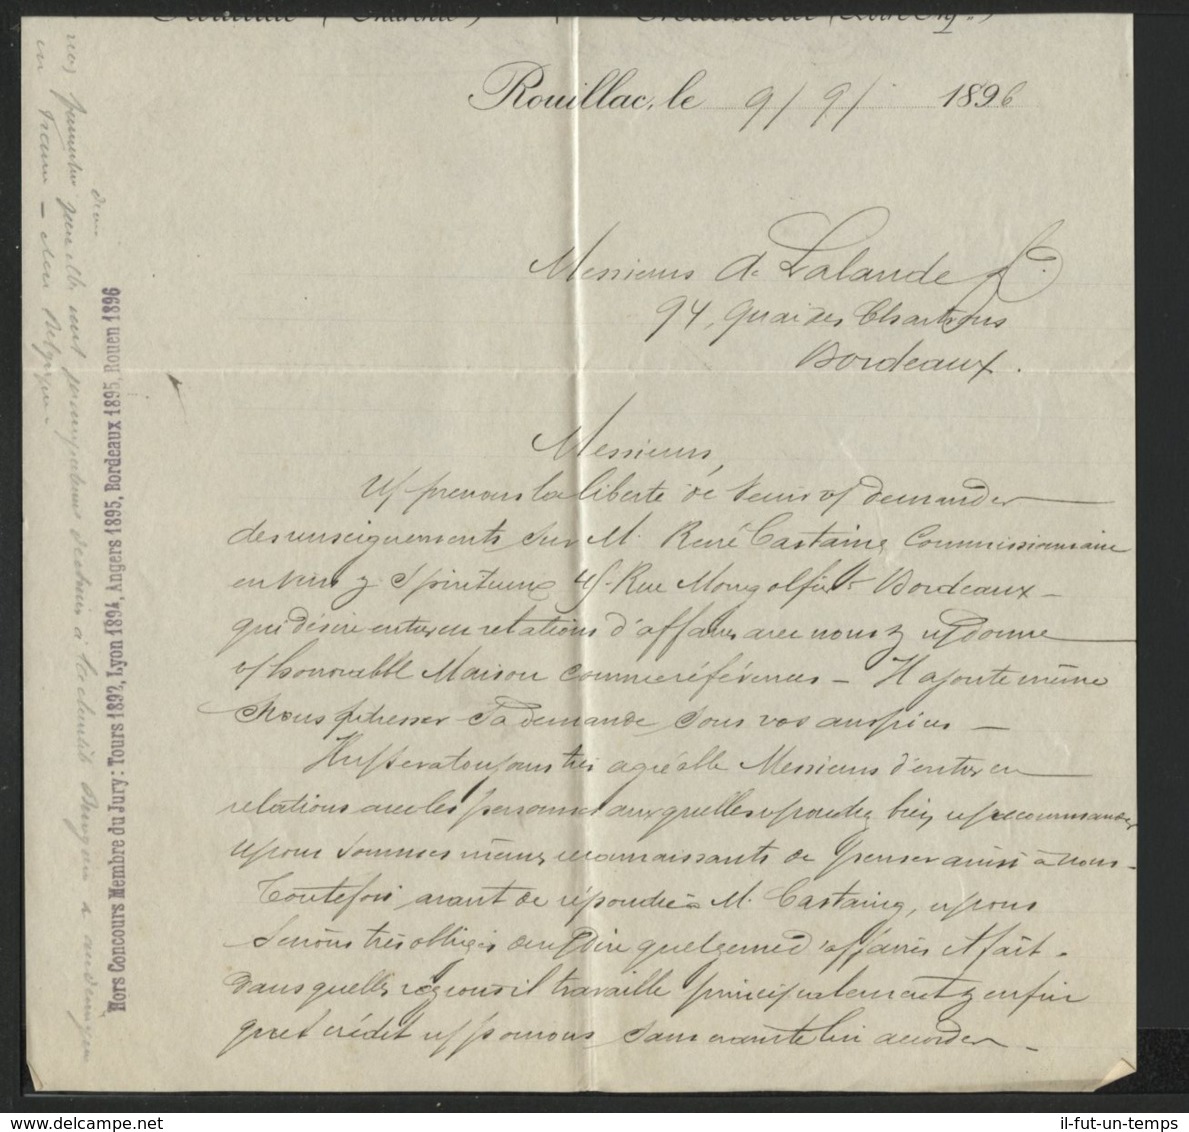 Rouillac, le 9/9/ 1896
Messieurs A. de Lalande & Cie.
94, Quai des Chartrons
Bordeaux.
Messieurs,
prenons la liberté de venir demander
des renseignements sur M. René Castaing Commissionnaire
en vins & Spiritueux, 45 Rue Mongolfier Bordeaux -
qui désire entrer en relations d'affaires avec nous & donne
v/ honorable Maison comme références - Il ajoute même
Nous adresser sa demande sous vos auspices -
Il n/ sera toujours très agréable Messieurs d'entrer en
relations avec les personnes auxquelles v/ voudrez bien n/ recommander
n/ vous sommes même reconnaissants de penser ainsi à nous -
Toutefois, avant de répondre à M. Castaing, n/ vous
serions très obligés de n/ dire quel genre d'affaires il fait -
dans quelles régions il travaille principalement & enfin
quel crédit n/ pouvons sans crainte lui accorder -
Hors Concours Membre du Jury: Tours 1892, Lyon 1894, Angers 1895, Bordeaux 1895, Rouen 1896
il-fut-un-temps
www.delcampe.net